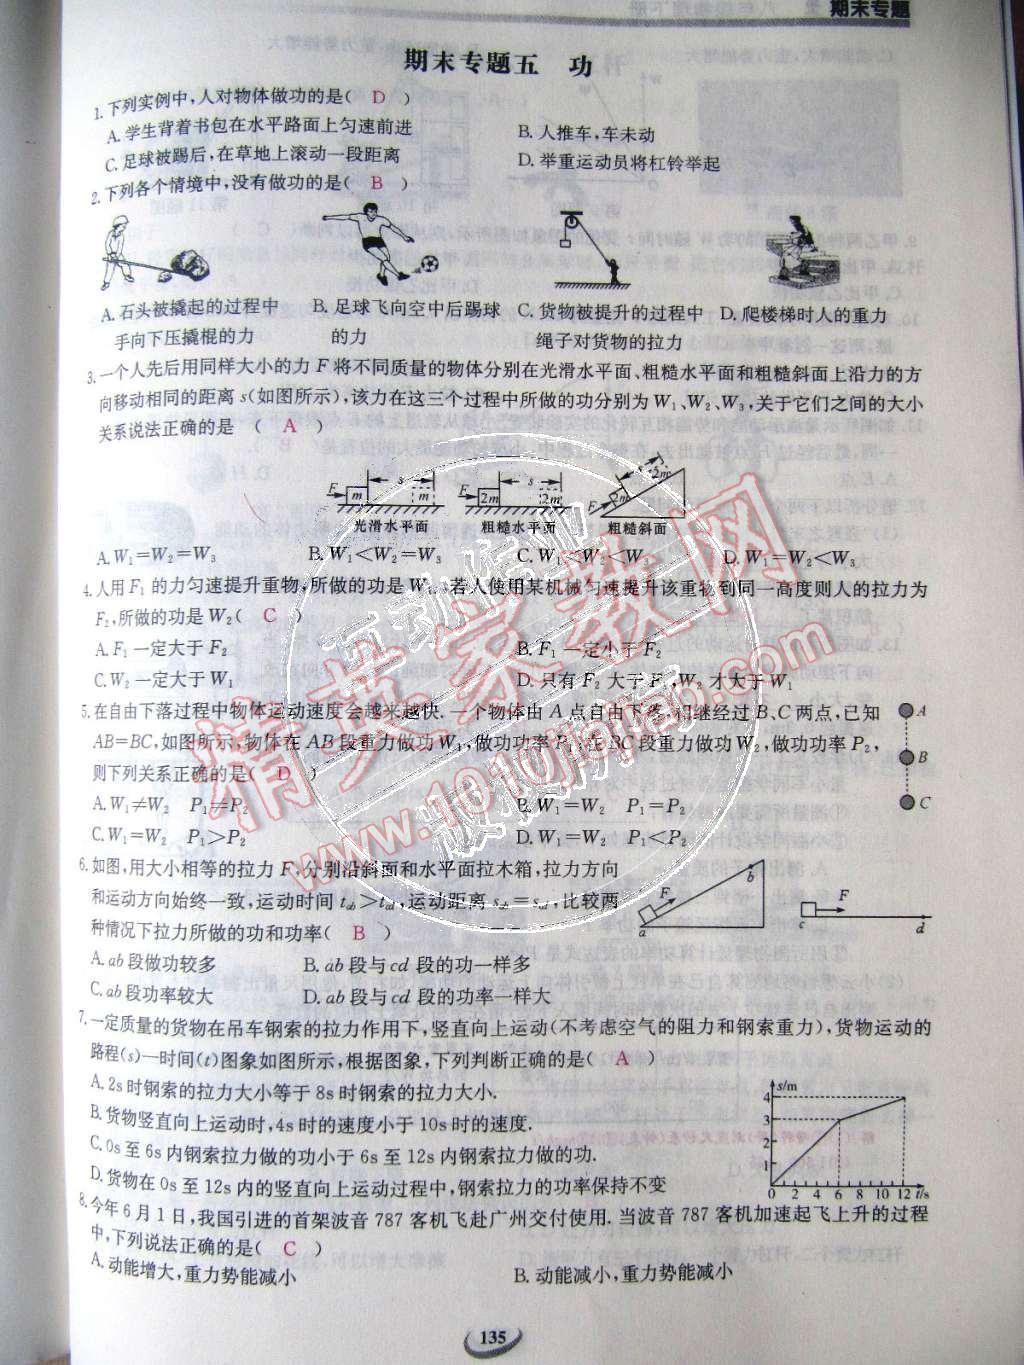 期末专题
期末专题五 功
1.下列实例中,人对物体做功的是( D )
A.学生背着书包在水平路面上匀速前进 B.人推车,车未动
C.足球被踢后,在草地上滚动一段距离 D.举重运动员将杠铃举起
2.下列各个情境中,没有做功的是( B )
A.石头被撬起的过程中 B.足球飞向空中后踢球 C.货物被提升的过程中 D.爬楼梯时人的重力
手向下压撬棍的力 的力 绳子对货物的拉力
3.一个人先后用同样大小的力 F 将不同质量的物体分别在光滑水平面、粗糙水平面和粗糙斜面上沿力的方
向移动相同的距离 s(如图所示),该力在这三个过程中所做的功分别为 W₁、W₂、W₃,关于它们之间的大小
关系说法正确的是 ( A )
F m s m F 2m s 2m F 2m s 2m
光滑水平面 粗糙水平面 粗糙斜面
A.W₁=W₂=W₃ B.W₁<W₂=W₃ C.W₁<W₂<W₃ D.W₁=W₂<W₃
4.人用 F₁ 的力匀速提升重物,所做的功是 W₁,若人使用某机械匀速提升该重物到同一高度则人的拉力为
F₂,所做的功是 W₂( C )
A.F₁ 一定大于 F₂ B.F₁ 一定小于 F₂
C.W₂ 一定大于 W₁ D.只有 F₂ 大于 F₁,W₂ 才大于 W₁
5.在自由下落过程中物体运动速度会越来越快.一个物体由 A 点自由下落,相继经过 B、C 两点,已知
AB=BC,如图所示,物体在 AB 段重力做功 W₁,做功功率 P₁;在 BC 段重力做功 W₂,做功功率 P₂,
则下列关系正确的是( D )
A
B
C
A.W₁≠W₂ P₁=P₂ B.W₁=W₂ P₁=P₂
C.W₁=W₂ P₁>P₂ D.W₁=W₂ P₁<P₂
6.如图,用大小相等的拉力 F,分别沿斜面和水平面拉木箱,拉力方向
和运动方向始终一致,运动时间 tab>tcd,运动距离 sab=scd,比较两
种情况下拉力所做的功和功率( B )
F a b F c d
A.ab 段做功较多 B.ab 段与 cd 段的功一样多
C.ab 段功率较大 D.ab 段与 cd 段的功率一样大
7.一定质量的货物在吊车钢索的拉力作用下,竖直向上运动(不考虑空气的阻力和钢索重力),货物运动的
路程(s)—时间(t)图象如图所示,根据图象,下列判断正确的是( A )
A.2s时钢索的拉力大小等于 8s时钢索的拉力大小.
B.货物竖直向上运动时,4s时的速度小于 10s时的速度.
C.0s至 6s内钢索拉力做的功小于 6s至 12s内钢索拉力做的功.
D.货物在 0s至 12s内的竖直向上运动过程中,钢索拉力的功率保持不变
s/m
4
3
2
1
0 2 4 6 8 10 12 t/s
8.今年 6 月 1 日,我国引进的首架波音 787 客机飞赴广州交付使用.当波音 787 客机加速起飞上升的过程
中,下列说法正确的是( C )
A.动能增大,重力势能减小 B.动能减小,重力势能减小
135
精英家教网
www.1010jiajiao.com